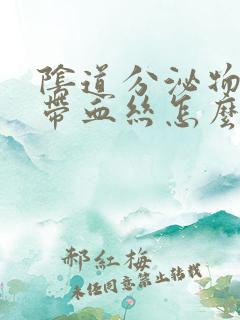 陰道分泌物
帶血絲怎麼
郝紅梅
未經同意禁止轉載